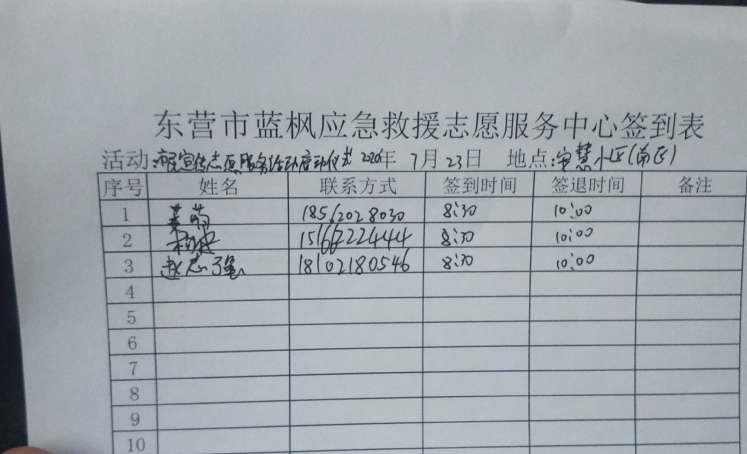 东营市蓝枫应急救援志愿服务中心签到表
活动:宣传志愿服务活动启动仪式 2020年 7月23日 地点:安慧小区(南区)
序号 姓名 联系方式 签到时间 签退时间 备注
1 18562028030 8:30 10:00
2 15166222444 8:30 10:00
3 赵志强 18102180546 8:30 10:00
4
5
6
7
8
9
10